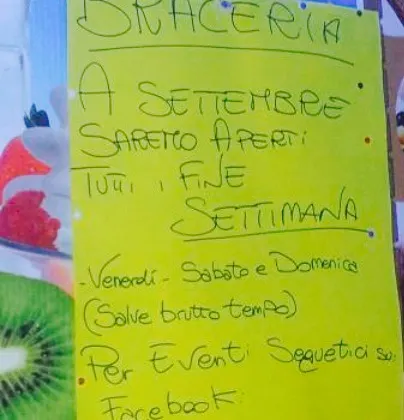 BRACERIA
A SETTEMBRE
SAREMO APERTI
TUTTI I FINE
SETTIMANA
- Venerdì - Sabato e Domenica
(Salve brutto tempo)
Per Eventi Seguetici su:
Facebook: